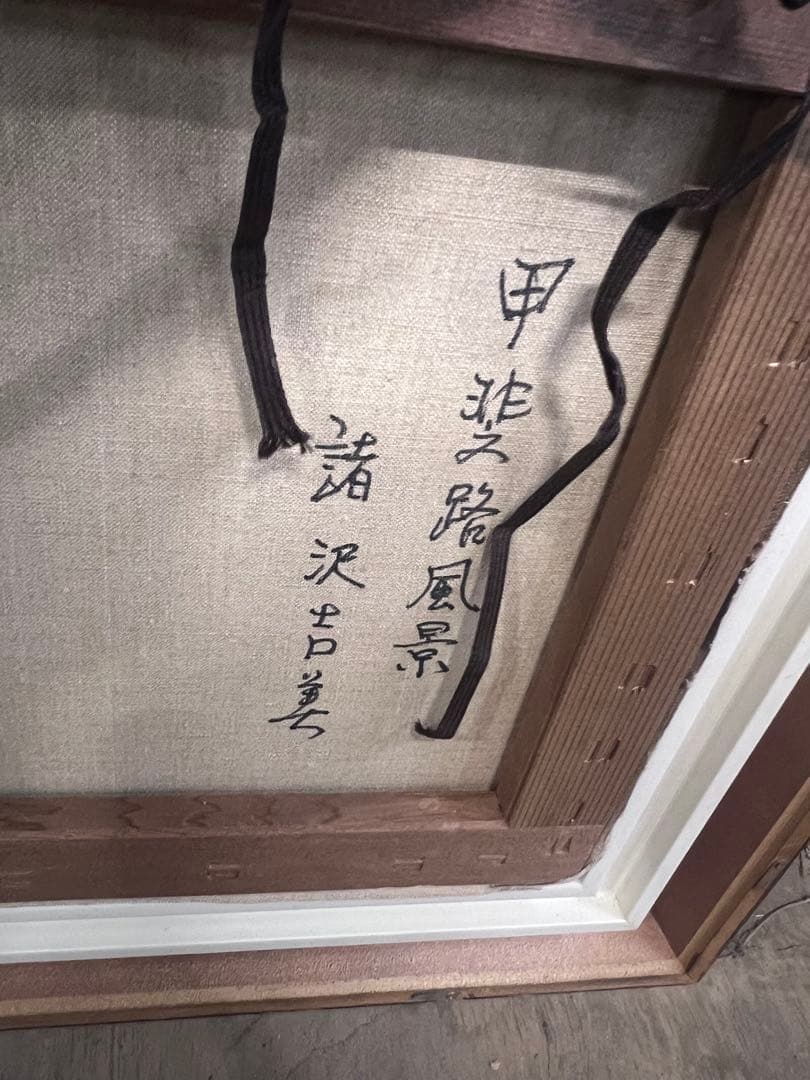 甲斐路風景
諸沢吉美